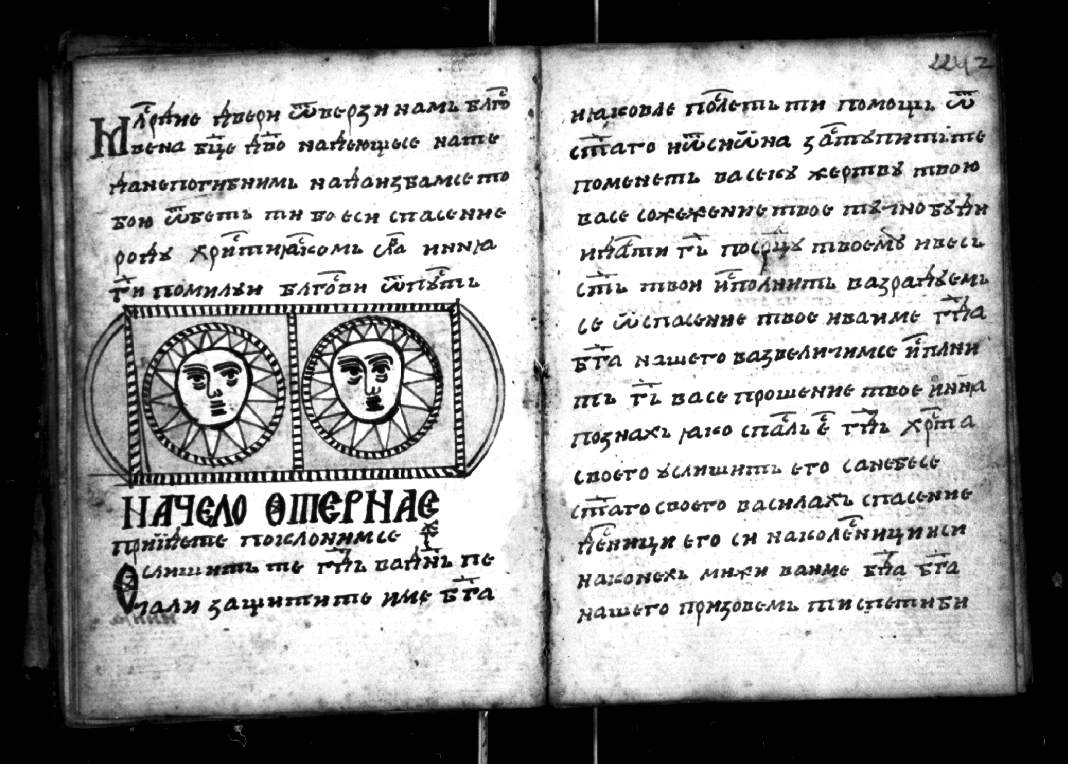 Млⷭ҇рдие двери ѿверзи намь блгⷭ҇о
вена бц҃е дв҃о надеющесе на те
да не погибнимь на да избавмсе то
бою ѿ беть ти бо еси спасение
родꙋ хрⷭ҇тиꙗⷭ҇комь сла иниꙗ
гⷭ҇и помилꙋи блгⷭ҇ови ѿпꙋⷭ҇ть
НАЧЕЛО ѲТЕРНАЕ
приидете поклонимсе г҃
Ѹслишить те гдⷭ҇ь вадⷩ҇ь пе
чали защитите име бг҃а
иꙗковле поⷭ҇леть ти помощь ѿ
ст҃аго иѿсиѡна заⷭ҇тꙋпить те
поменеть васекꙋ жертвꙋ твою
васе сожежение твое тꙋчно бꙋди
идаⷭ҇ти гь҃ посрⷣцꙋ твоемꙋ ивесь
свⷮ҇ь твои иⷭ҇полнить вазрадꙋемь
се ѿ спасение твое иваиме гдⷭ҇а
бг҃а нашего вазвеличимсе иⷭ҇плни
ть гь҃ васе прошение твое инниꙗ
познахь ꙗко спаⷭ҇ль еⷭ҇ гдⷭ҇ь хрⷭ҇та
своего ꙋслишить его санебесе
ст҃аго своего василахь спасение
деⷭ҇ници его си наколеⷭ҇ници иси
наконехь мижи ваиме гдⷭ҇а бг҃а
нашего призовемь ти спети би